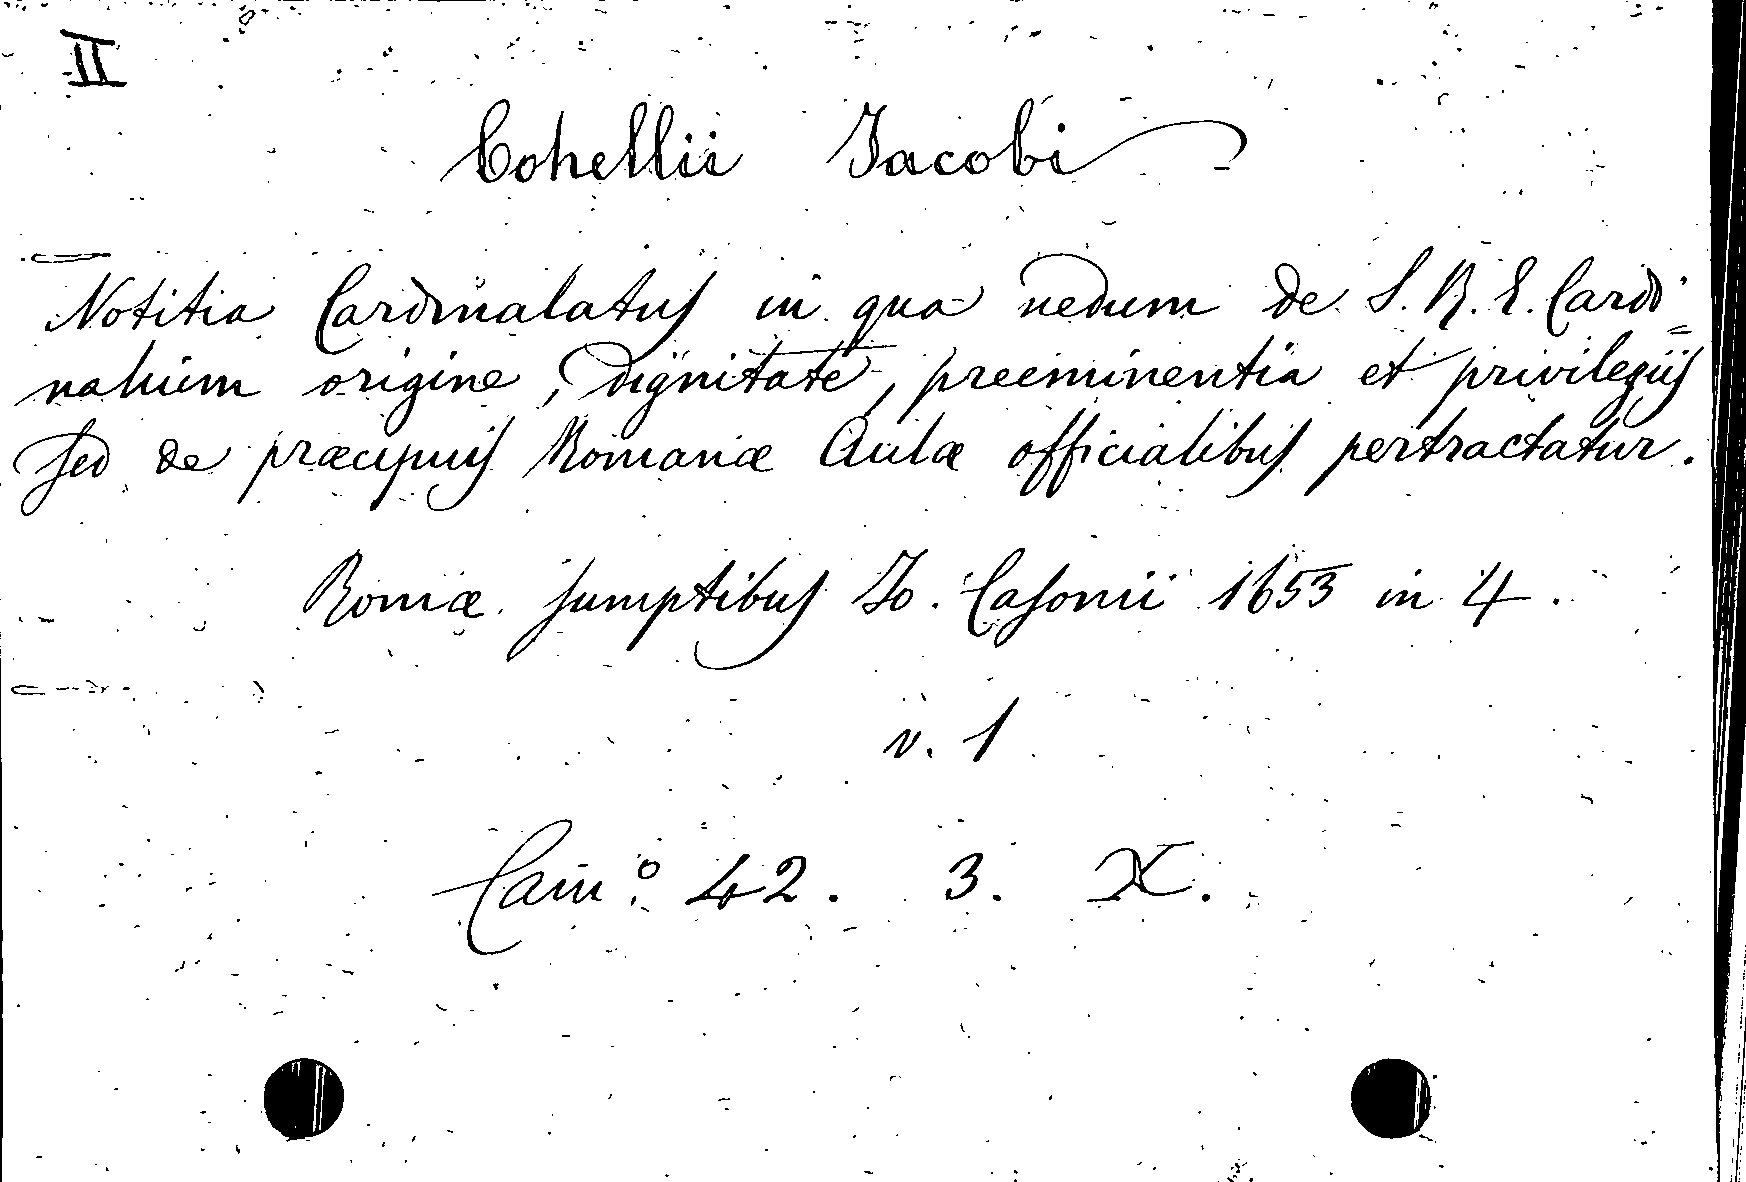 II
Cohellii Jacobi
Notitia Cardinalatus in qua nedum de S. R. E. Cardi=
nalium origine, dignitate, preeminentia et privilegiis
sed de præcipuis Romanæ Aulæ officialibus pertractatur.
Romæ sumptibus Jo. Casonii 1653 in 4.
v. 1
Cam.º 42. 3. X.